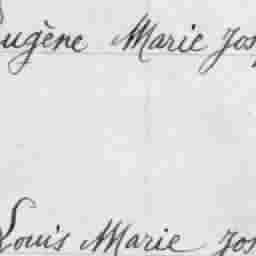 Eugène Marie Jos
Louis Marie Jos